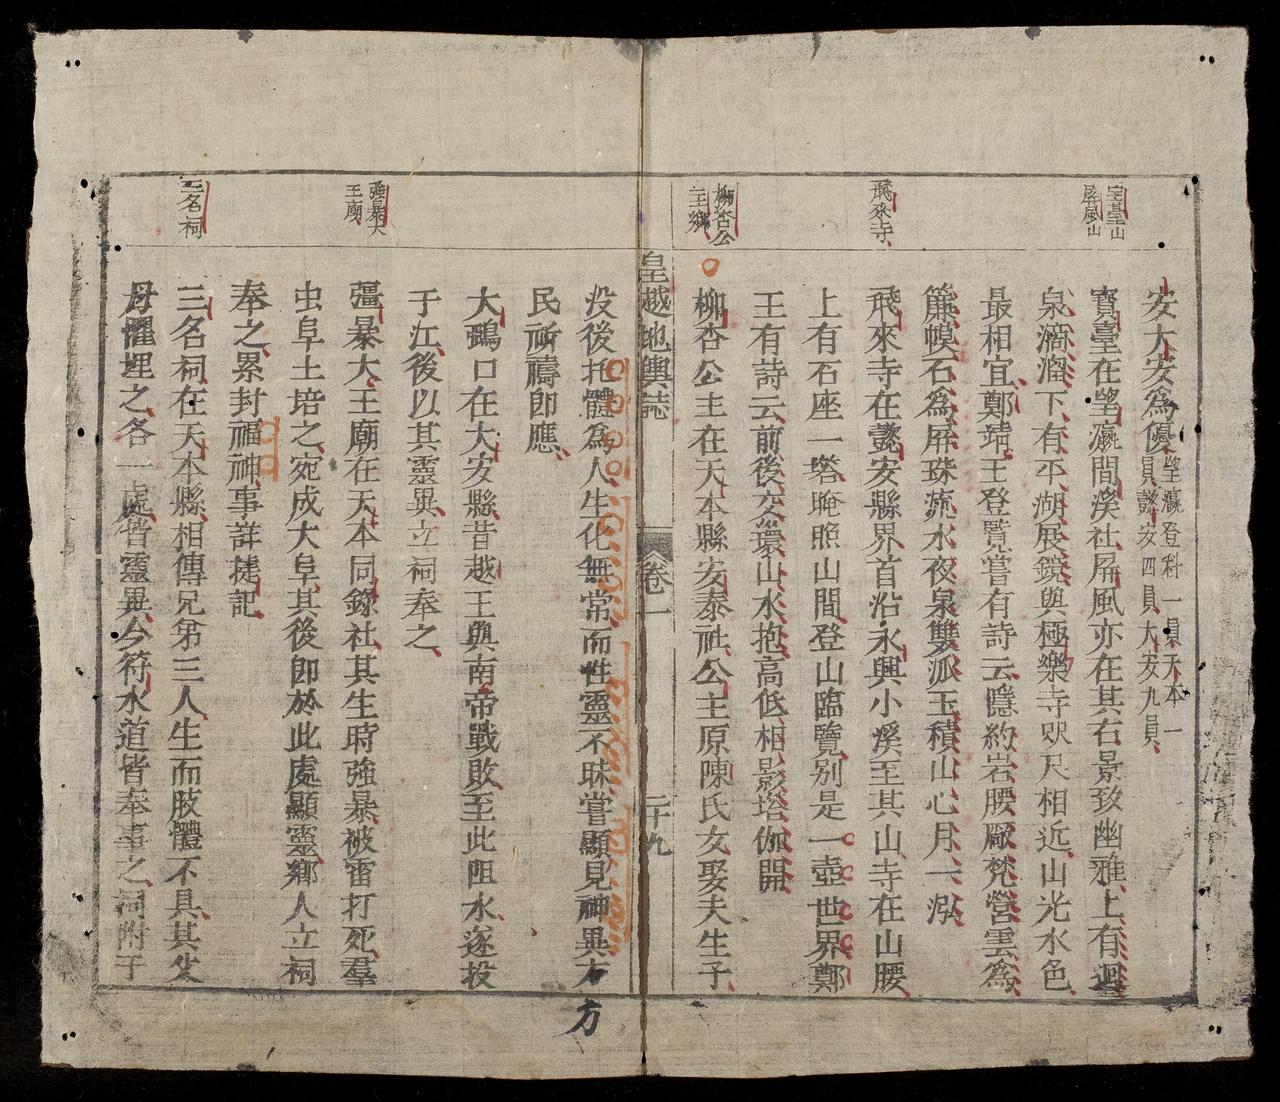 寶臺山
屏風山
飛來寺
柳杏公
主鄉
安大安為優望瀛登科一員天本一
員懿安四員大安九員
寶臺在望瀛間溪社屏風亦在其右景致幽雅上有
泉滴溜下有平湖展鏡與極樂寺咫尺相近山光水色
最相宜鄭靖王登覽嘗有詩云隱約岩腰厰梵營雲為
簾幌石為屏珠流水夜泉雙派玉積山心月一泓
飛來寺在懿安縣界首沿永興小溪至其山寺在山腰
上有石座一塔晻照山間登山臨覽別是一壺世界鄭
王有詩云前後交環山水抱高低相影塔伽開
柳杏公主在天本縣安泰社公主原陳氏女娶夫生子
皇越地輿誌
卷一
二十九
強暴大
王廟
三名祠
没後托體為人生化無常而性靈不昧嘗顯見神異方
方
民祈禱即應
大鵶口在大安縣昔越王與南帝戰敗至此阻水遂投
于江後以其靈異立祠奉之
彊暴大王廟在天本同錄社其生時強暴被雷打死羣
虫阜土培之宛成大阜其後即於此處顯靈鄉人立祠
奉之累封福神事詳捷記
三名祠在天本縣相傳兄弟三人生而肢體不具其父
母懼埋之各一處皆靈異今符水道皆奉事之祠附于